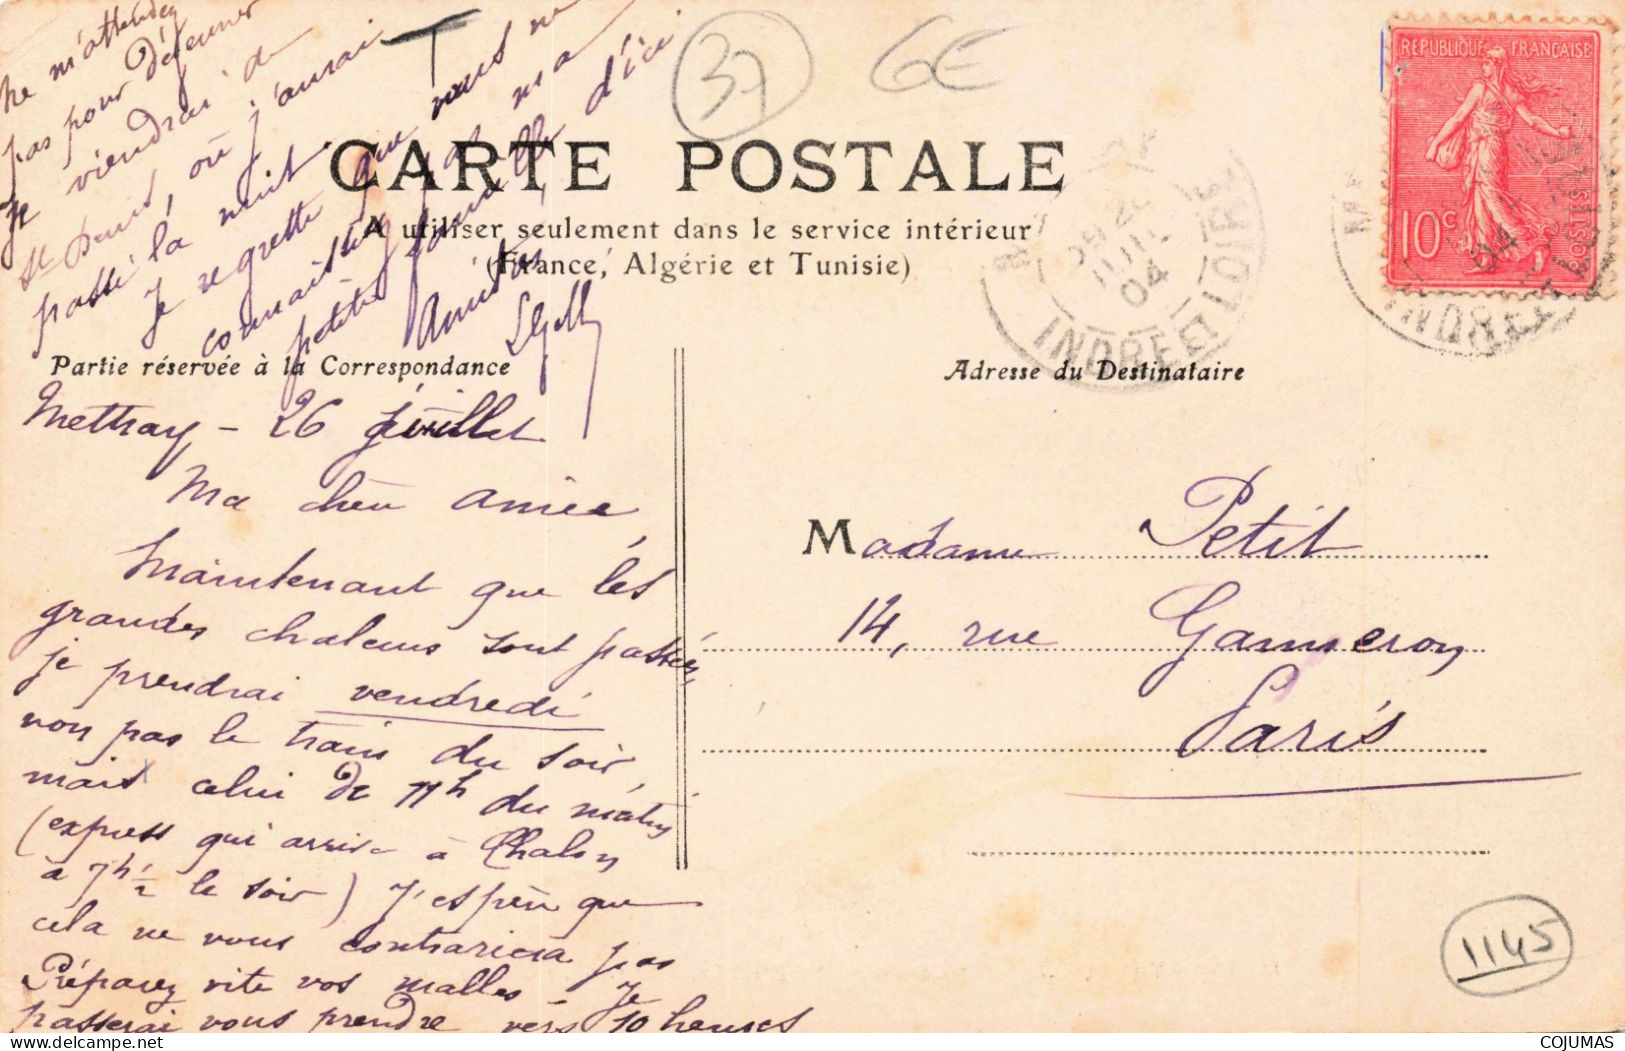 Ne m'attendez
pas pour déjeuner
Je viendrai de
St Denis, où j'aurai
passé la nuit
Je regrette que vous ne
connaissiez pas ma
petite famille d'ici
Amitiés,
CARTE POSTALE
A utiliser seulement dans le service intérieur
(France, Algérie et Tunisie)
Partie réservée à la Correspondance
Adresse du Destinataire
37
6E
RÉPUBLIQUE FRANÇAISE
10c
POSTES
INDRE ET LOIRE
04
Mettray - 26 juillet
Ma chère amie
Maintenant que les
grandes chaleurs sont passées,
je prendrai vendredi
non pas le train du soir,
mais celui de 11h du matin
(express qui arrive à Chalon
à 7h 1/2 le soir) J'espère que
cela ne vous contrariera pas
Préparez vite vos malles - Je
passerai vous prendre vers 10 heures
Madame Petit
14, rue Gameron
Paris
1145
COJUMAS